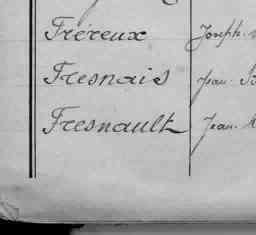 Fréreux Joseph
Fresnais Jean
Fresnault Jean